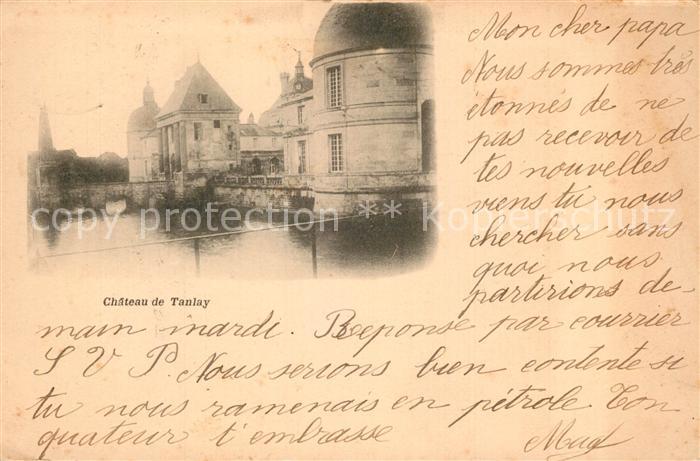 Mon cher papa
Nous sommes très
étonnés de ne
pas recevoir de
tes nouvelles
viens tu nous
chercher sans
quoi nous
partirions de-
main mardi. Reponse par courrier
S V P. Nous serions bien contente si
tu nous ramenais en pétrole Ton
quateur t'embrasse
Mad
Château de Tanlay
copy protection ** Kopierschutz